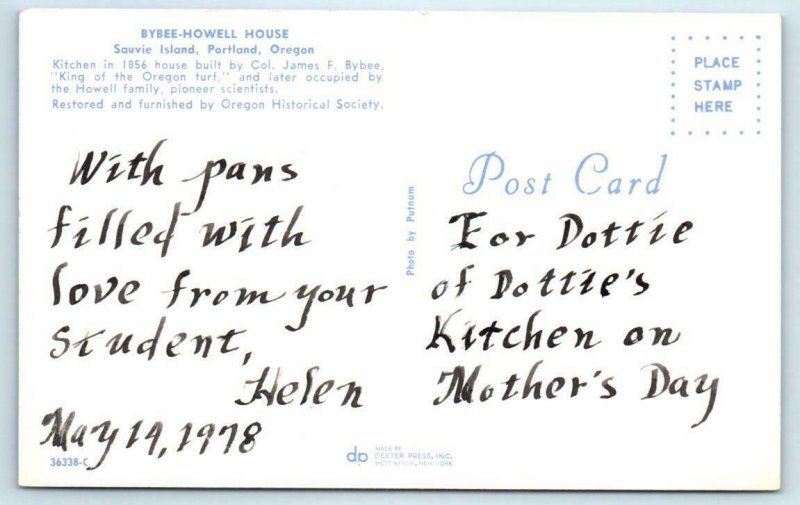 BYBEE-HOWELL HOUSE
Sauvie Island, Portland, Oregon
Kitchen in 1856 house built by Col. James F. Bybee,
"King of the Oregon turf," and later occupied by
the Howell family, pioneer scientists.
Restored and furnished by Oregon Historical Society.
PLACE
STAMP
HERE
With pans
filled with
love from your
Student,
Helen
May 14, 1978
36338-C
Photo by Putnam
Post Card
For Dottie
of Dottie's
Kitchen on
Mother's Day
dp
MADE BY
DEXTER PRESS, INC.
WEST NYACK, NEW YORK